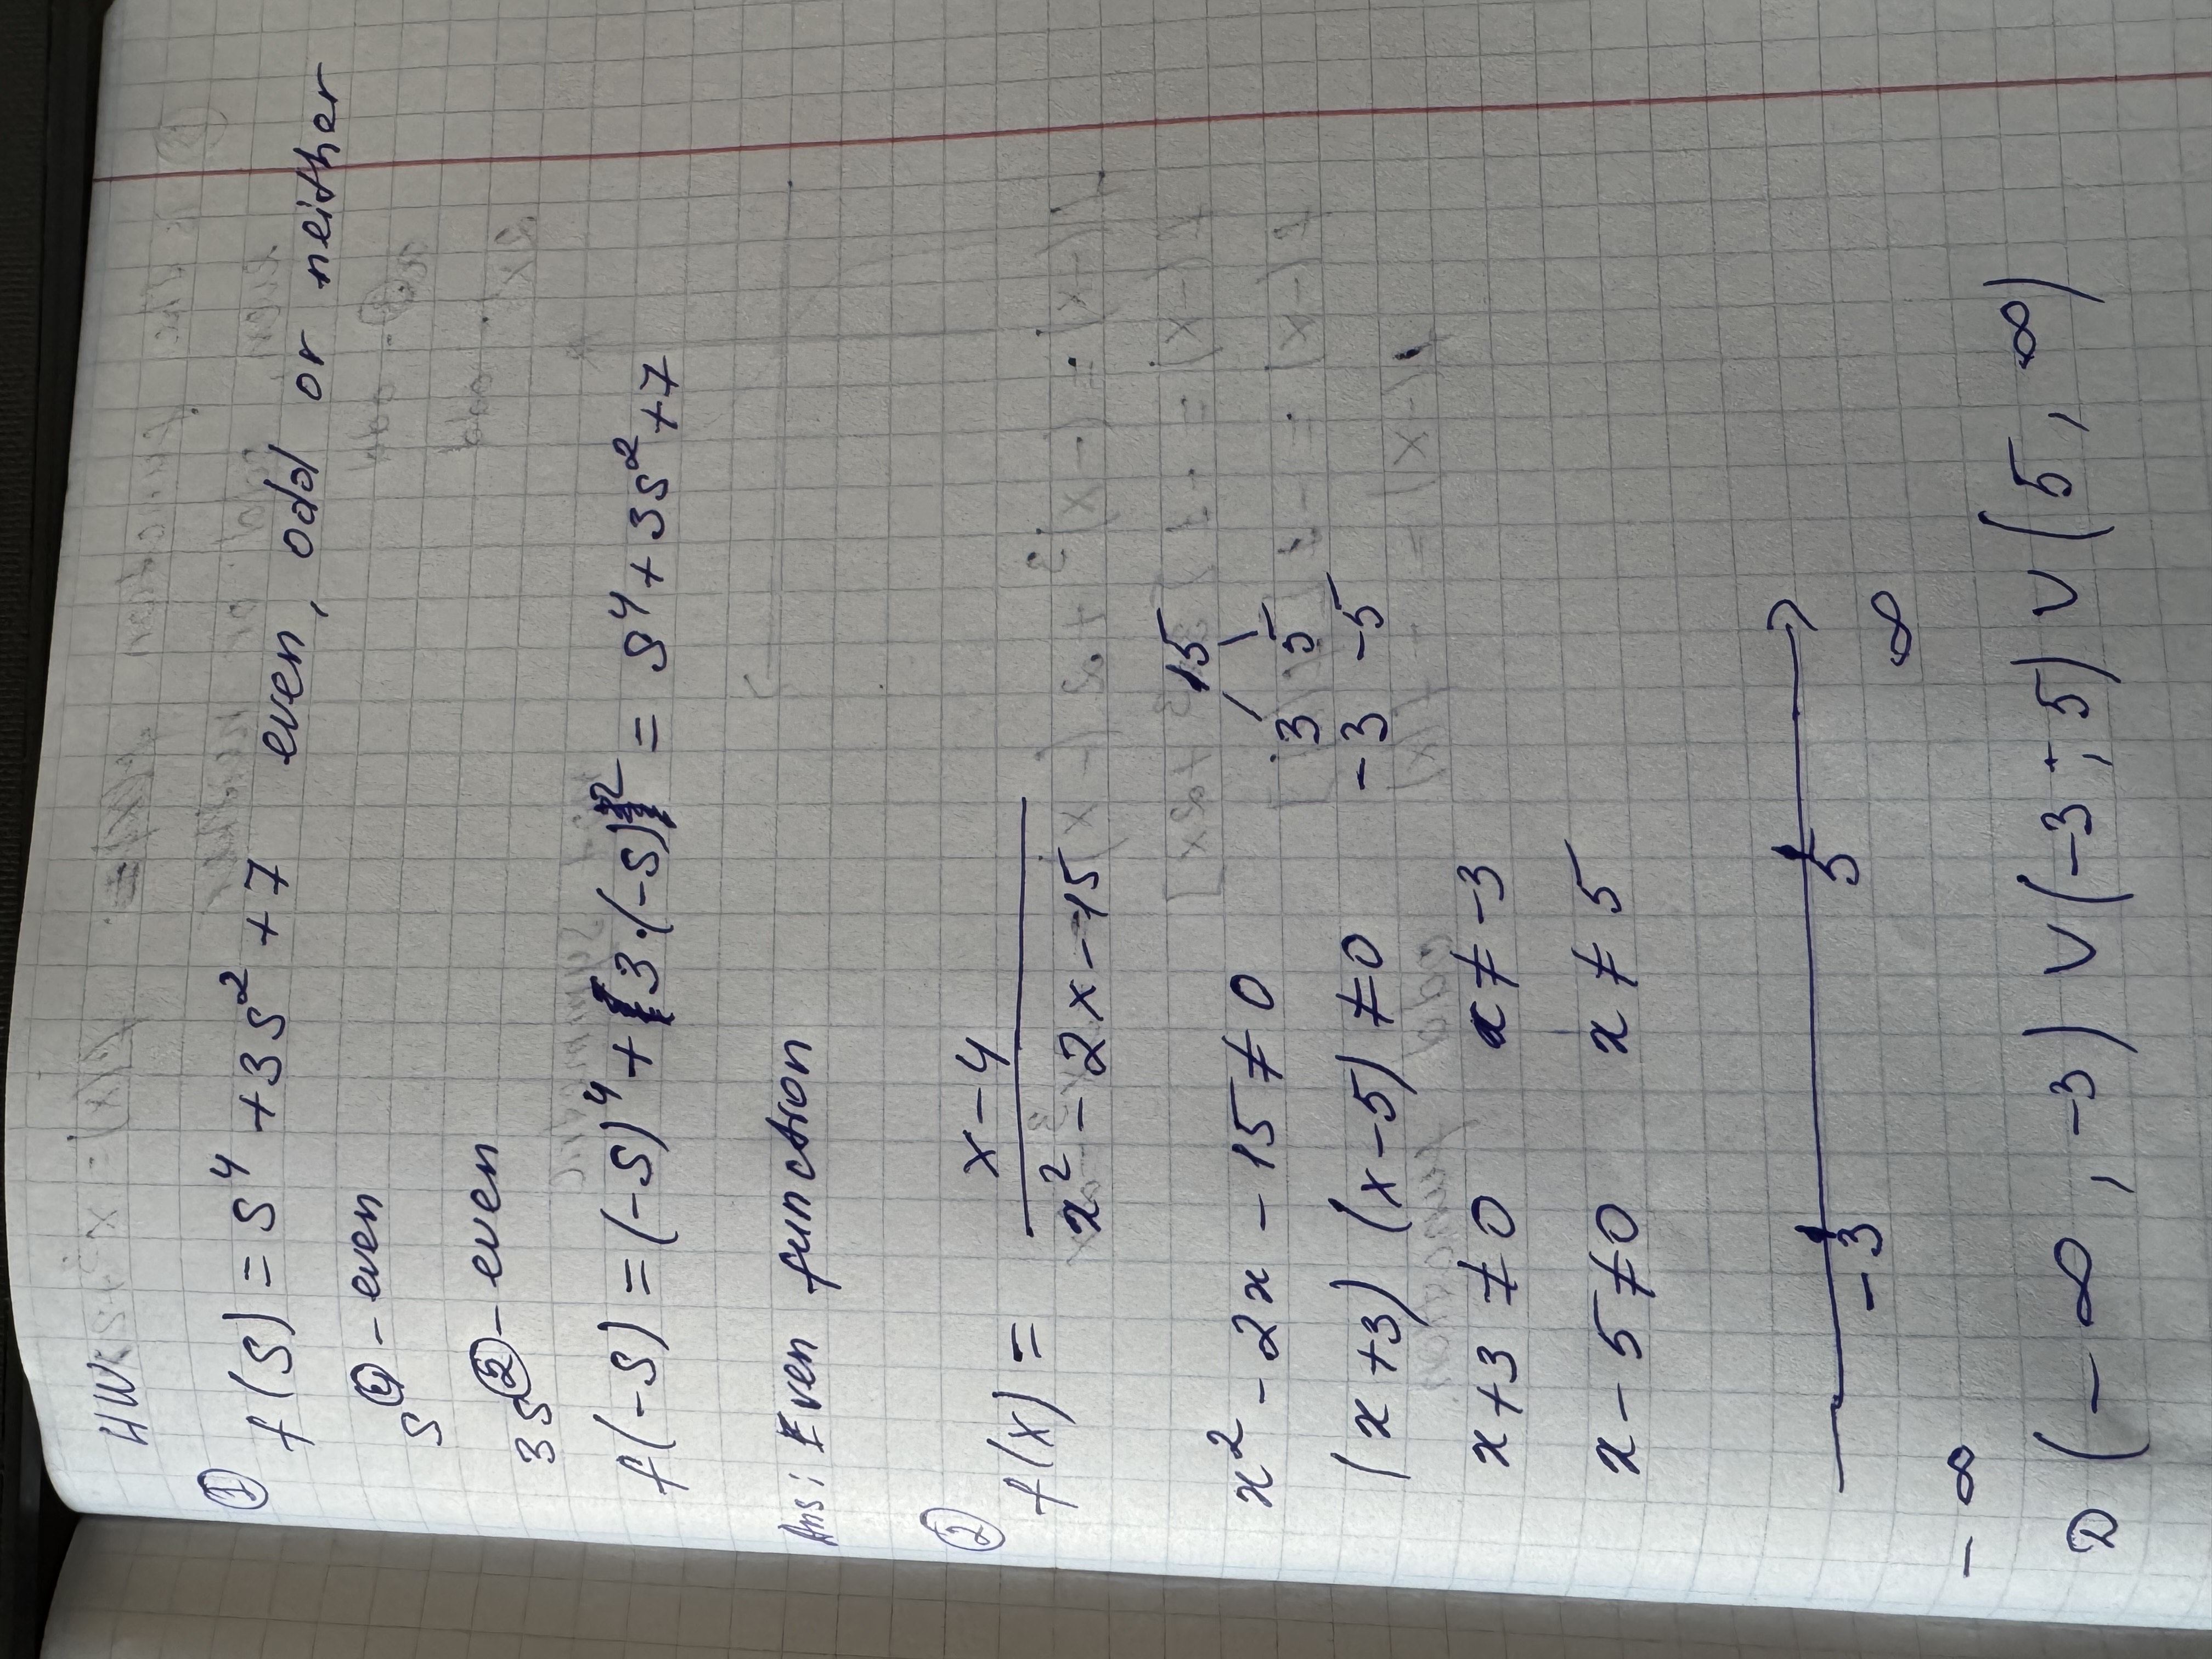 HW
① f(s) = s⁴ + 3s² + 7 even, odd or neither
s④ - even
3s② - even
f(-s) = (-s)⁴ + 3·(-s)² = s⁴ + 3s² + 7
Ans: Even function
② f(x) = (x-4)/(x² - 2x - 15)
15
x² - 2x - 15 ≠ 0 3 5
(x+3) (x-5) ≠ 0 -3 -5
x+3 ≠ 0 x ≠ -3
x - 5 ≠ 0 x ≠ 5
-3 5
-∞ ∞
D (-∞, -3) ∪ (-3; 5) ∪ (5, ∞)